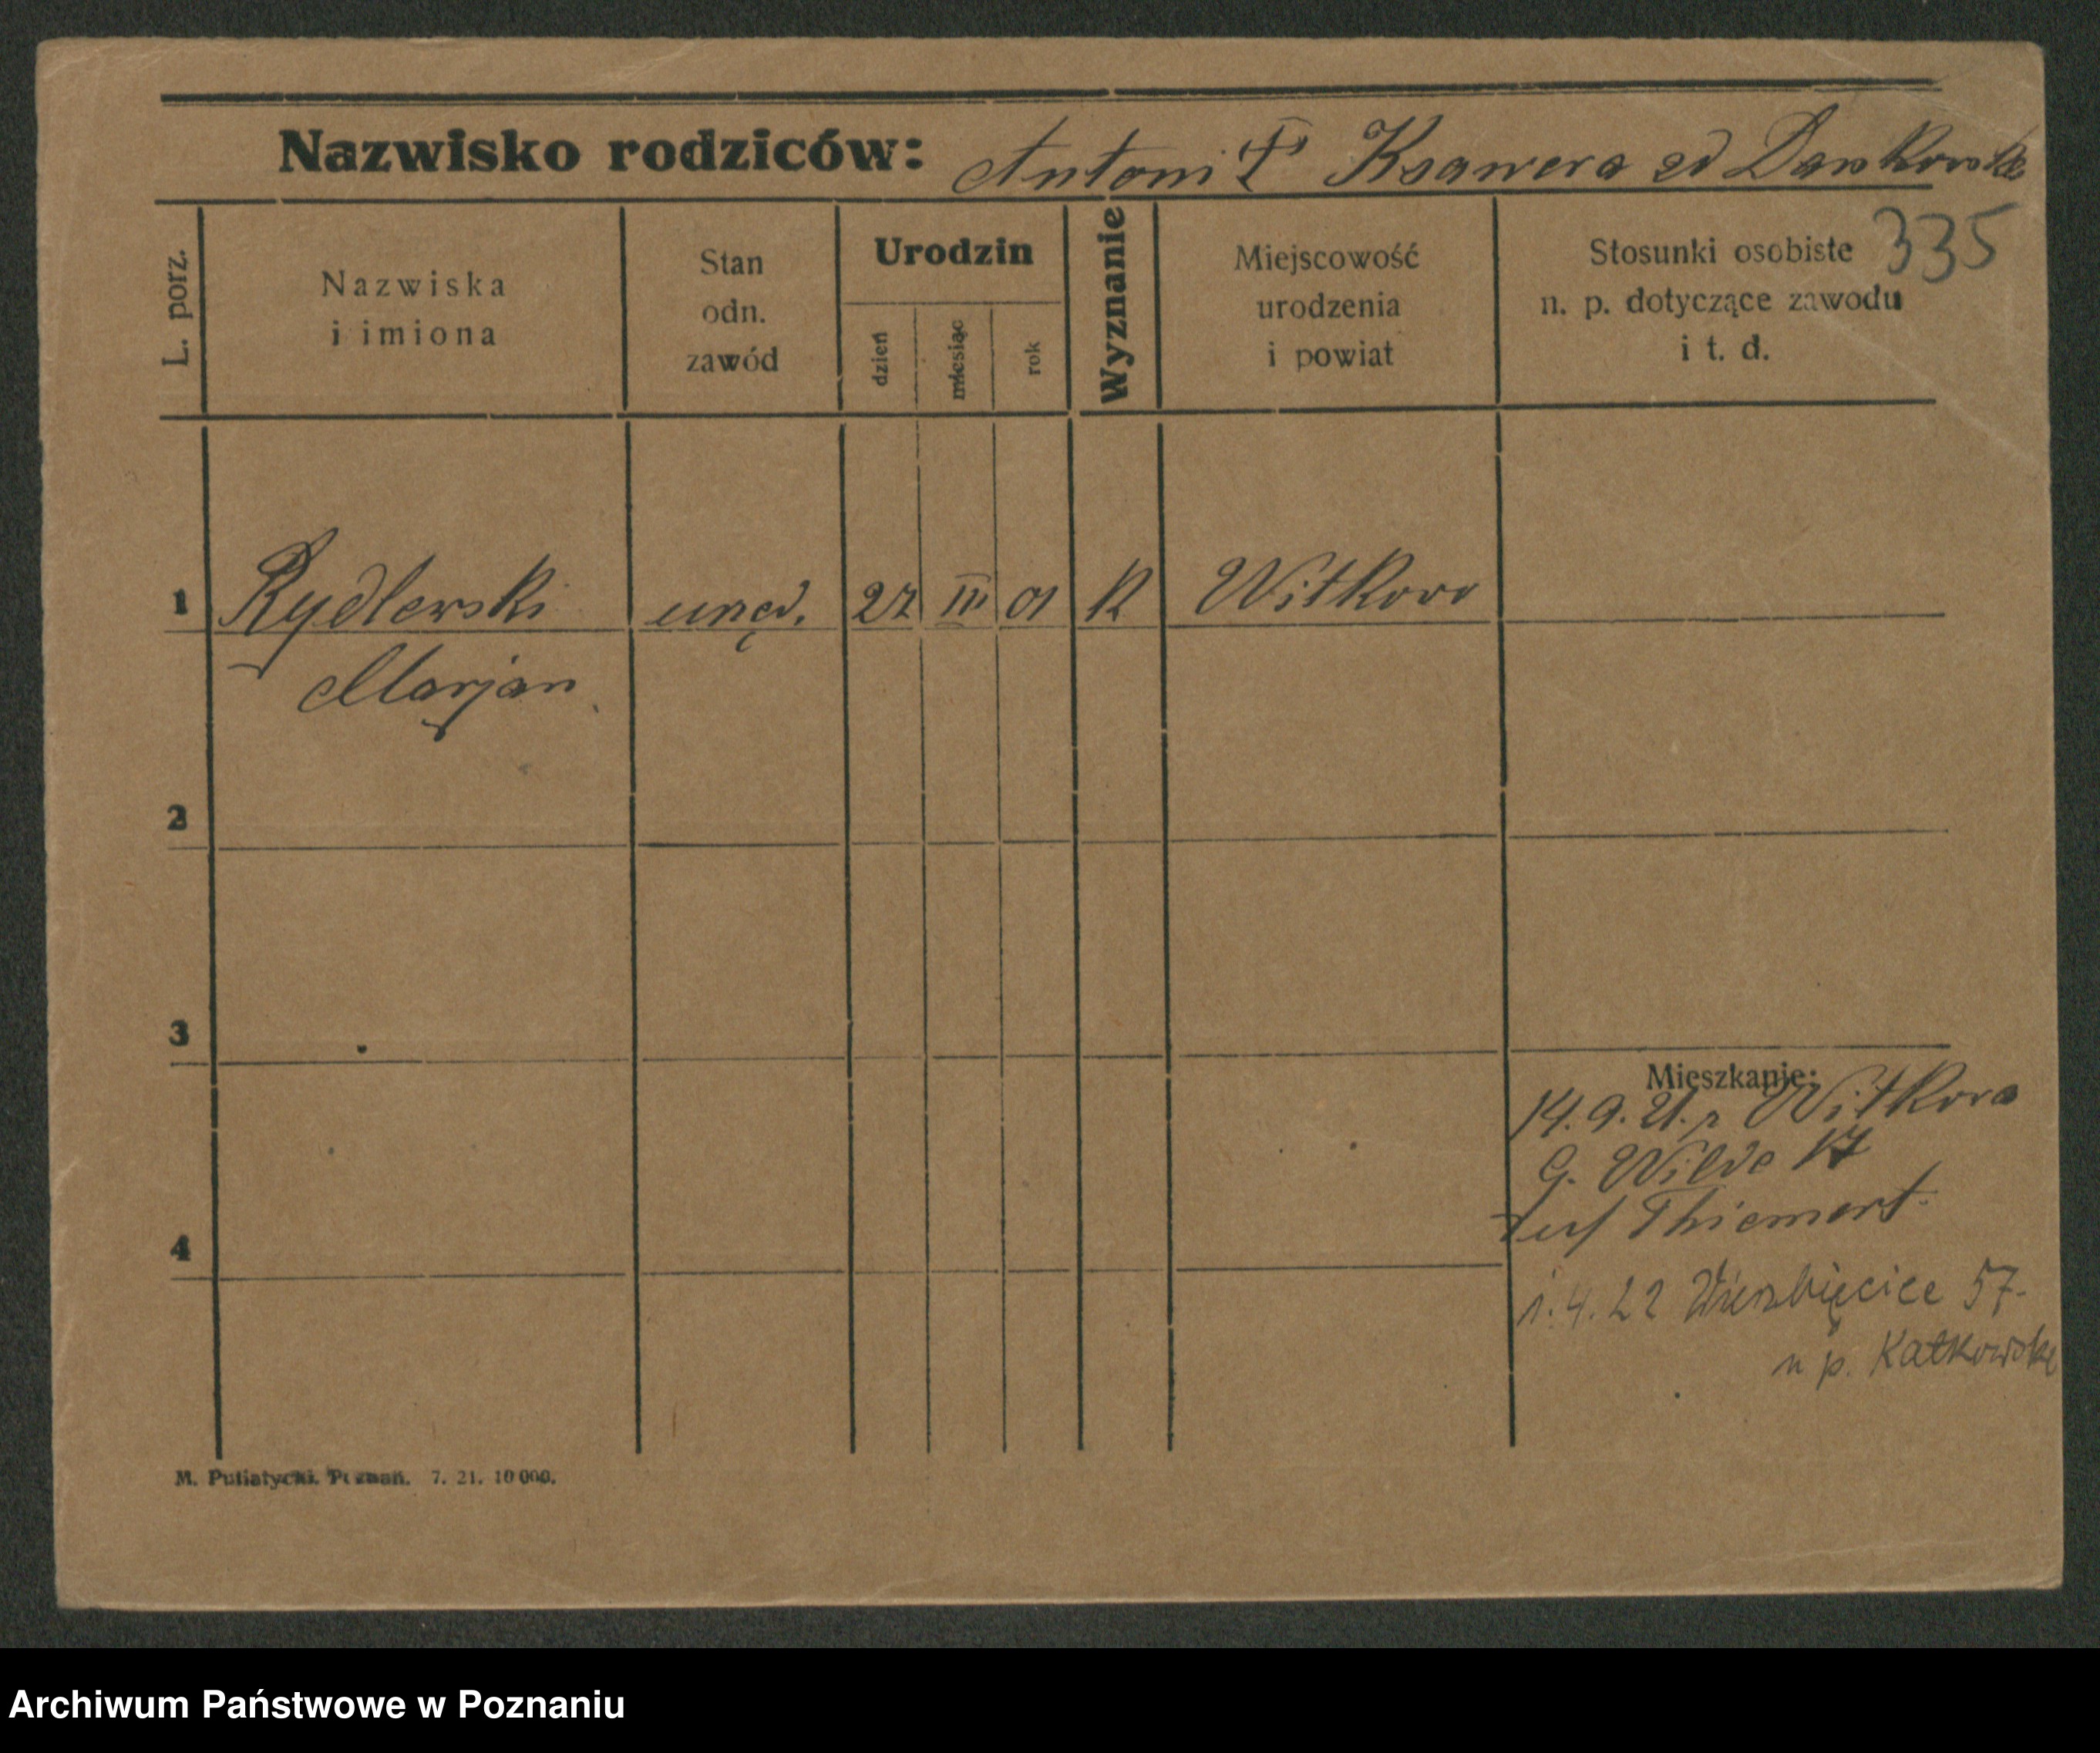 Nazwisko rodziców: Antoni † Ksawera zd Dankowska
335
L. porz.
Nazwiska
i imiona
Stan
odn.
zawód
Urodzin
dzień
miesiąc
rok
Wyznanie
Miejscowość
urodzenia
i powiat
Stosunki osobiste
n. p. dotyczące zawodu
i t. d.
1 Rydlewski urzęd. 27 III 01 K Witkowo
Marjan
2
3
Mieszkanie:
14.9.21. z Witkowa
G. Wilde 17
4
1.4.22 Wierzbięcice 57.
u p. Katkowski
M. Putiatycki. Poznań. 7. 21. 10 000.
Archiwum Państwowe w Poznaniu